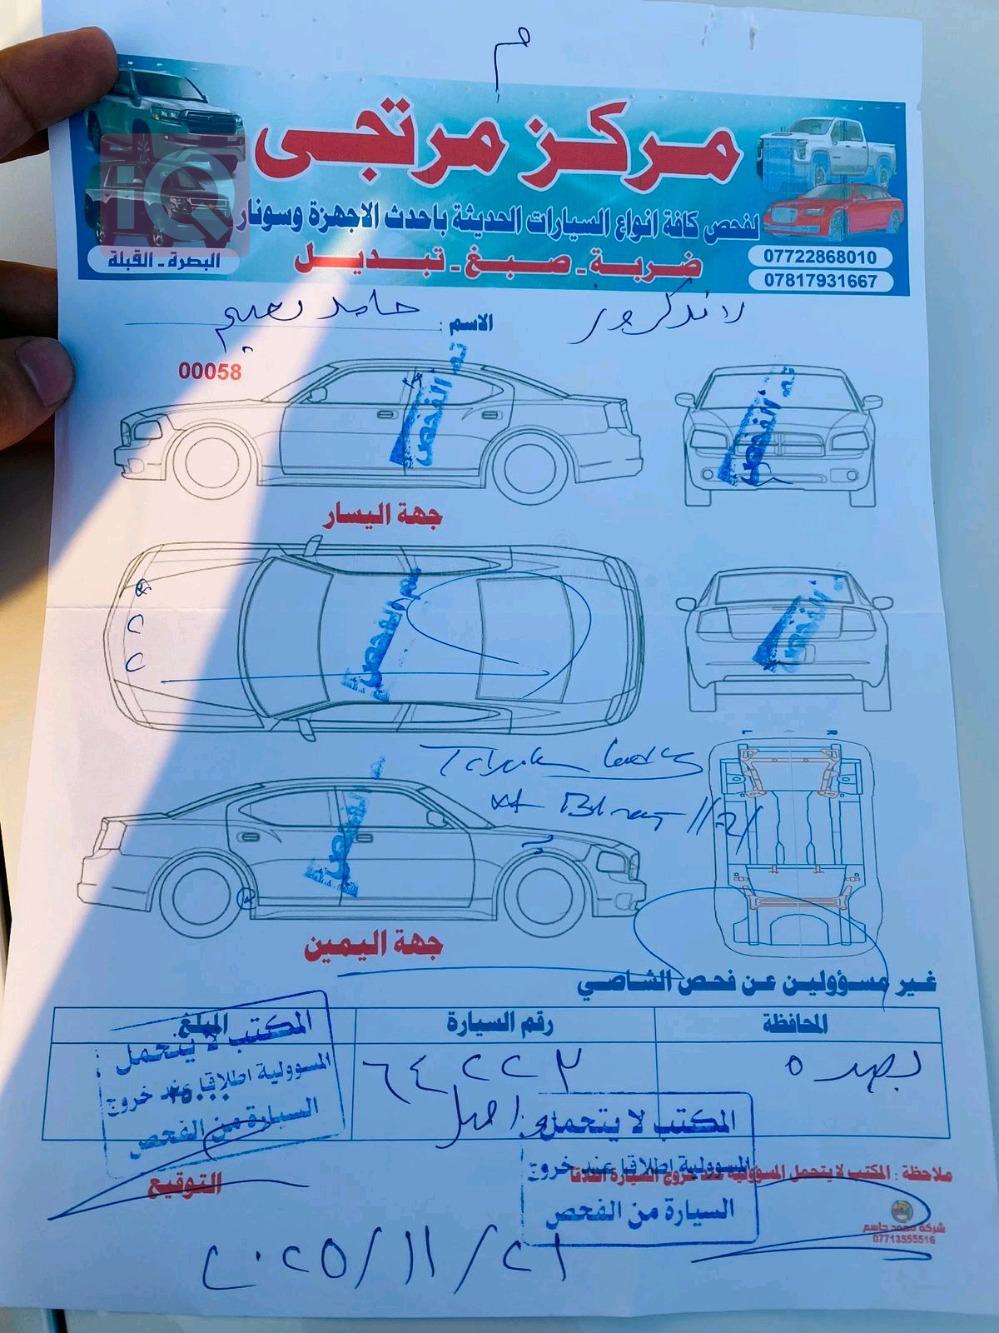 م
مركز مرتجى
لفحص كافة انواع السيارات الحديثة باحدث الاجهزة وسونار
ضربة - صبغ - تبديل
البصرة - القبلة
07722868010
07817931667
iQ
لاندكروز
الاسم : حامد نعيم
00058
تم الفحص
تم الفحص
جهة اليسار
تم الفحص
تم الفحص
تم الفحص
جهة اليمين
غير مسؤولين عن فحص الشاصي
المحافظة
رقم السيارة
المبلغ
بصره
٦٤٢٢٢
المكتب لا يتحمل
المسوولية اطلاقا عند خروج
السيارة من الفحص
المكتب لا يتحمل
المسوولية اطلاقا عند خروج
السيارة من الفحص
ملاحظة : المكتب لا يتحمل المسؤولية عند خروج السيارة
التوقيع
07713555516
٢٠٢٥/١١/٢١